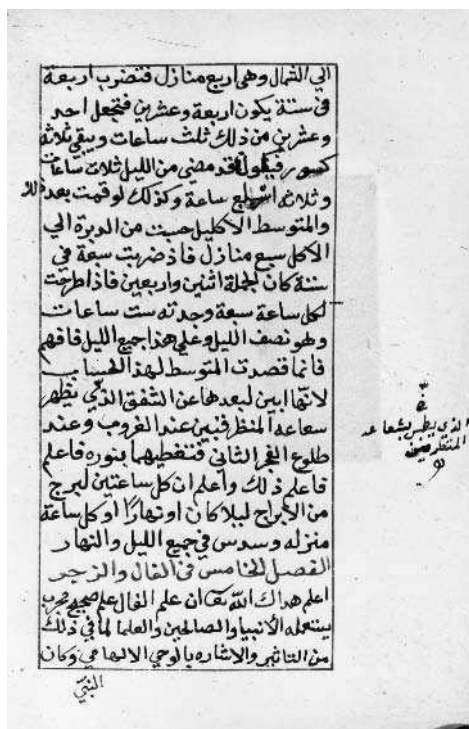 الي الشمال وهي اربع منازل فتضرب اربعة
في ستة يكون اربعة وعشرين فتجعل احد
وعشرين من ذلك ثلث ساعات ويبقي ثلاثة
كسور فيقول قد مضي من الليل ثلاث ساعات
وثلاثه اسباع ساعة وكذلك لو قمت بعد ذلك
والمتوسط الاكليل حسبت من الدبرة الي
الاكلل سبع منازل فاذ ضربت سبعة في
ستة كان الجملة اثنين واربعين فاذا طرحت
لكل ساعة سبعة وجدته ست ساعات
وهو نصف الليل وعلي هذا جميع الليل فافهم
فانما قصدت المتوسط لهذ الحساب
لانها ابين لبعدها عن الشفق الذي يظهر
سعاعه المنظر فنين عند الغروب وعند
طلوع الفجر الثاني فتغطيهما بنوره فاعلم
فاعلم ذلك واعلم ان كل ساعتين لبرج
من الابراج ليلا كان او نهارًا او كل ساعة
منزله وسدس في جميع الليل والنهار
الفصل الخامس في الفال والزجر
اعلم هداك الله تعا ان علم الفال علم صحيح مجرب
يستعمله الأنبيا والصالحين والعلما لما في ذلك
من التاثير والاشاره بالوحي الالهامي وكان
النبي
الذي يطمس بشعاعه